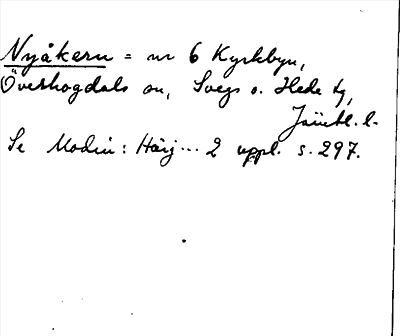 Nyåkern = nr 6 Kyrkbyn,
Överhogdals sn, Svegs o. Hede tg,
Jämtl. l.
Se Modin: Härj... 2 uppl. s. 297.